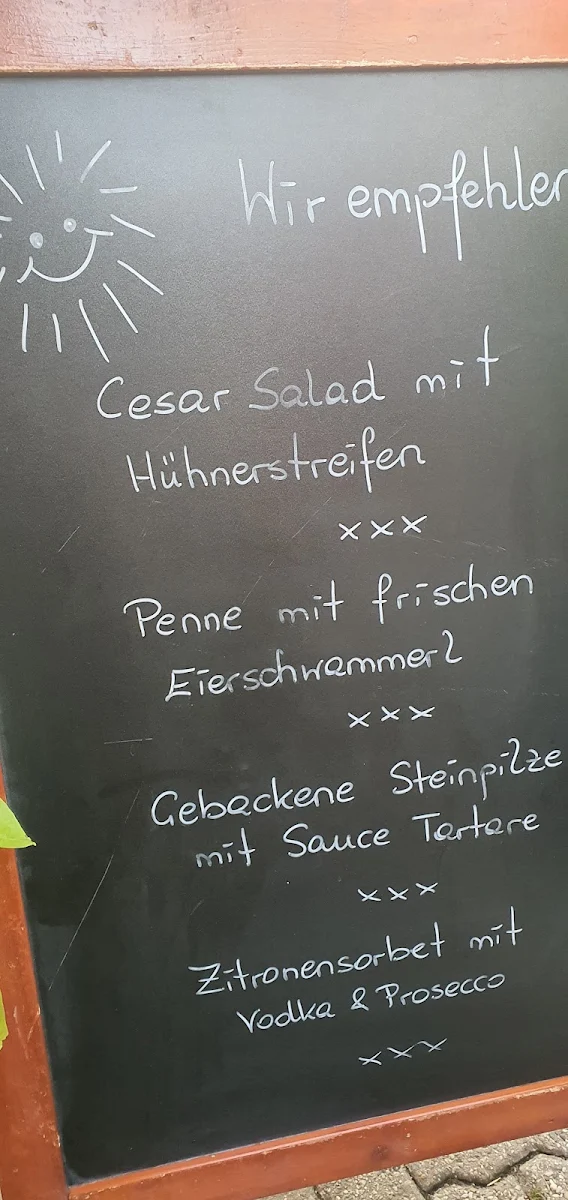 Wir empfehlen
Cesar Salad mit
Hühnerstreifen
xxx
Penne mit frischen
Eierschwammerl
xxx
Gebackene Steinpilze
mit Sauce Tartare
xxx
Zitronensorbet mit
Vodka & Prosecco
xxx